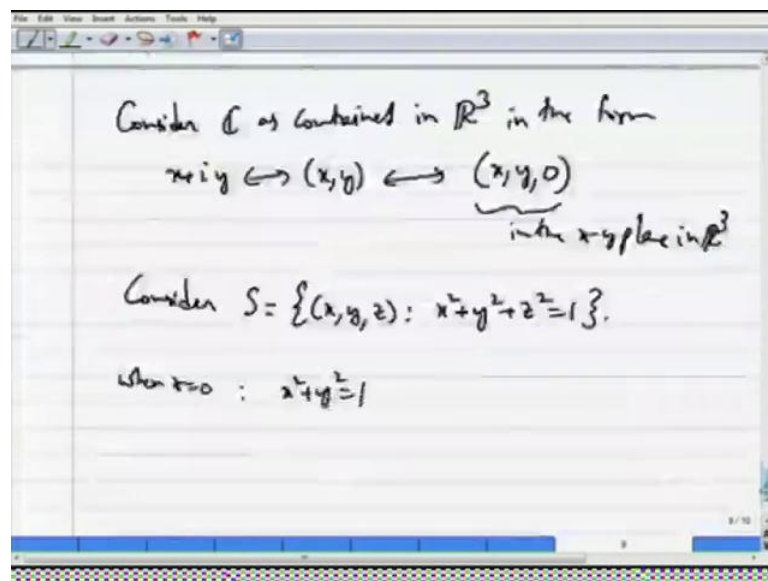 File Edit View Insert Actions Tools Help
Consider ℂ as contained in ℝ³ in the form
x+iy ↔ (x,y) ↔ (x,y,0)
in the x-y plane in ℝ³
Consider S = {(x,y,z): x²+y²+z²=1}.
when z=0 : x²+y²=1
9/10
9